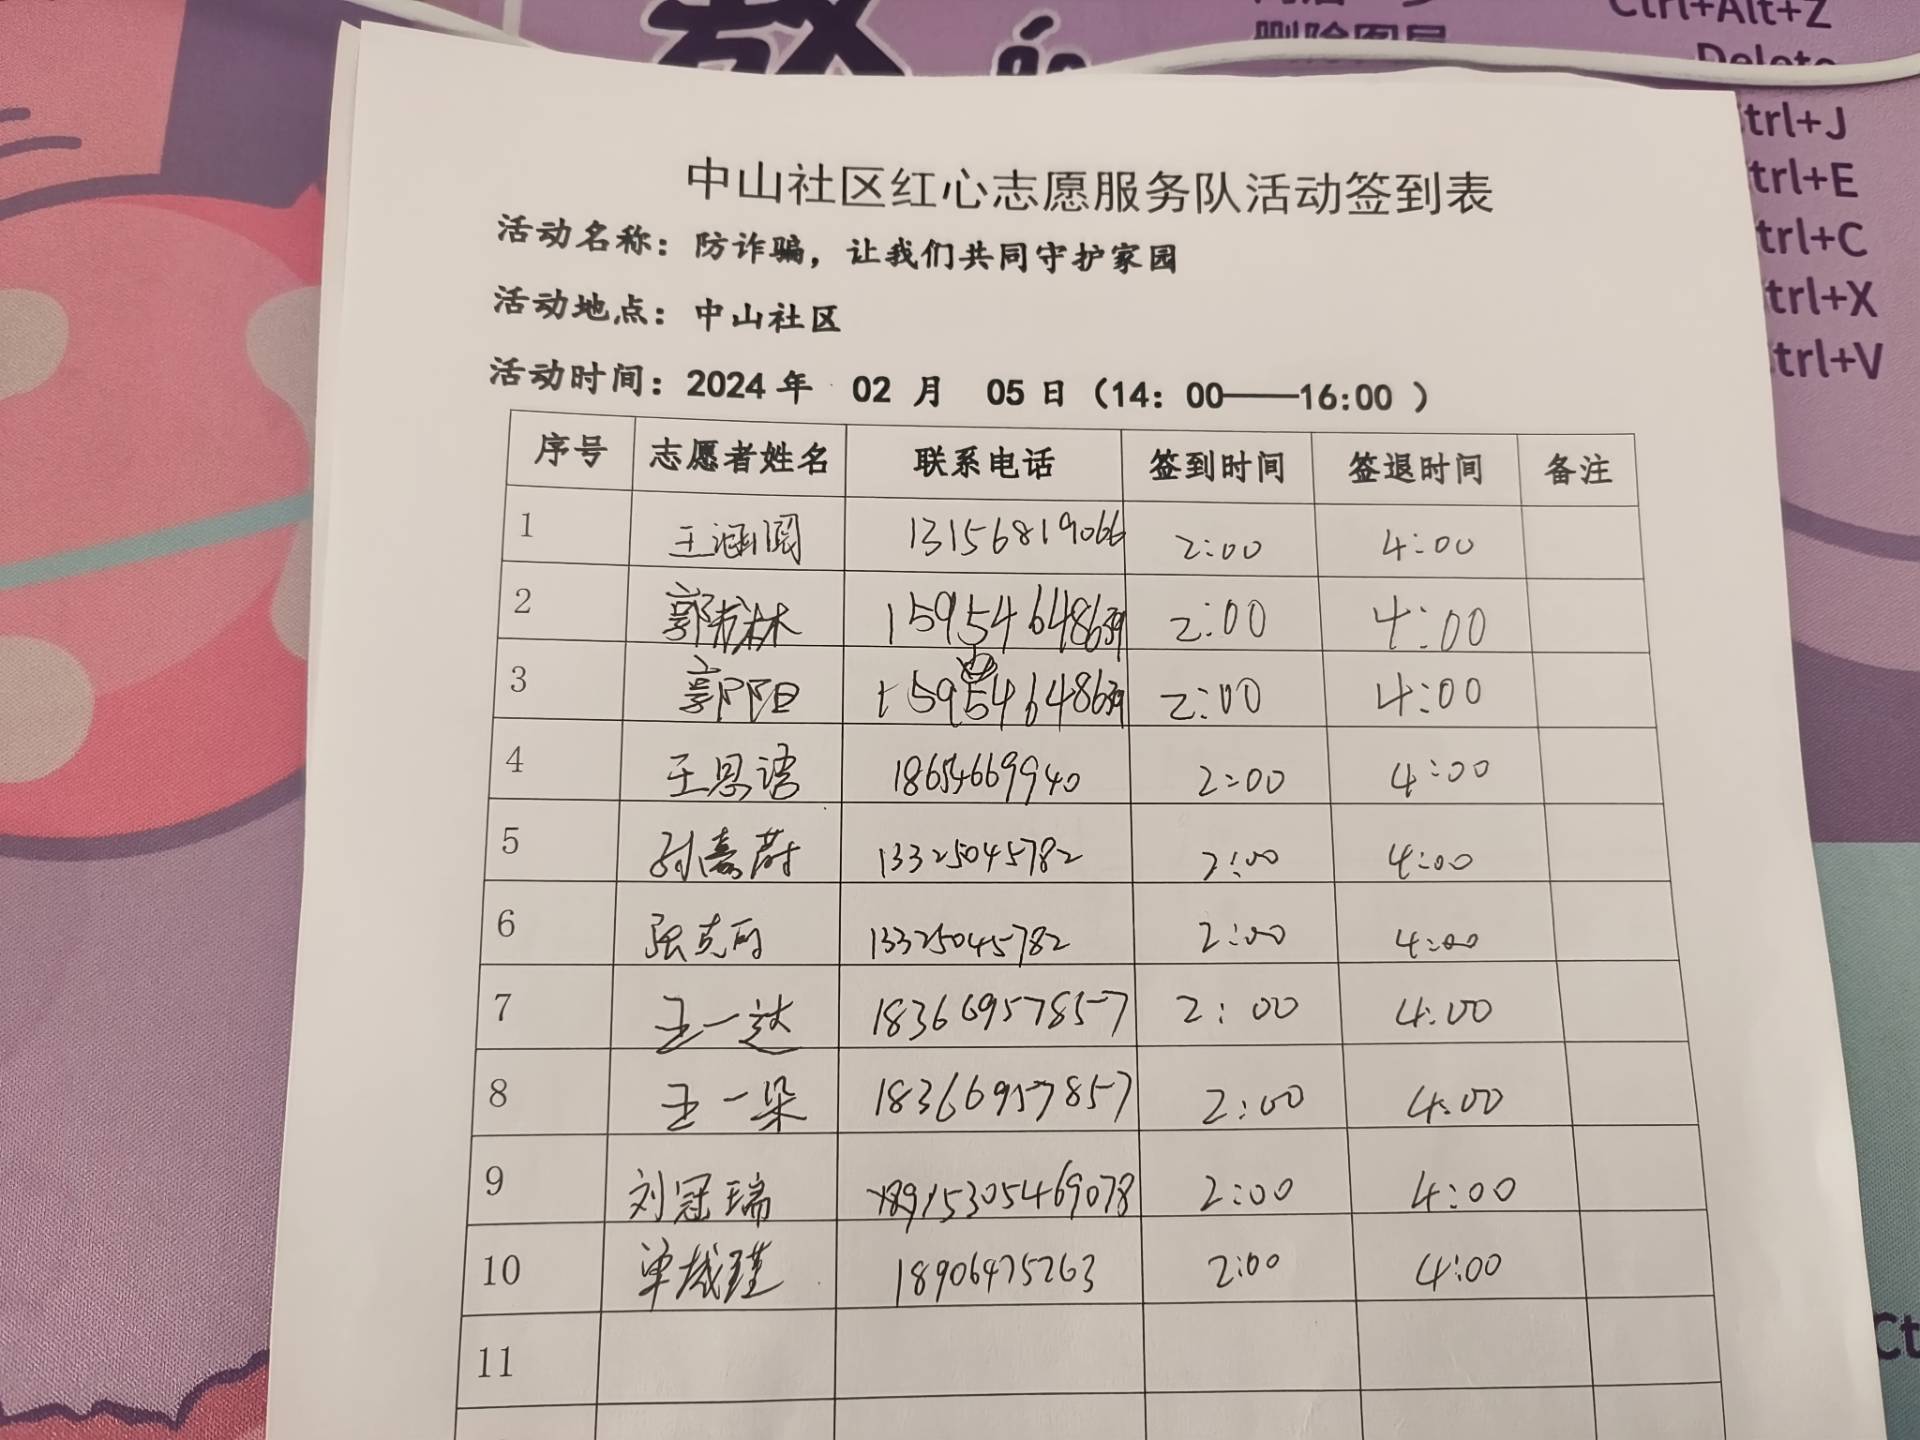 删除图层
Ctrl+Alt+Z
Delete
trl+J
trl+E
trl+C
trl+X
trl+V
中山社区红心志愿服务队活动签到表
活动名称：防诈骗，让我们共同守护家园
活动地点：中山社区
活动时间：2024 年 02 月 05 日（14：00——16:00 ）
序号 志愿者姓名 联系电话 签到时间 签退时间 备注
1 13156819066 2:00 4:00
2 15954648639 2:00 4:00
3 郭阳 15954648639 2:00 4:00
4 王思语 18654669940 2:00 4:00
5 孙嘉蔚 13325045782 2:00 4:00
6 张克 13325045782 2:00 4:00
7 王一达 18366957857 2:00 4:00
8 王一朵 18366957857 2:00 4:00
9 刘冠瑞 15305469078 2:00 4:00
10 18906475263 2:00 4:00
11
Ct